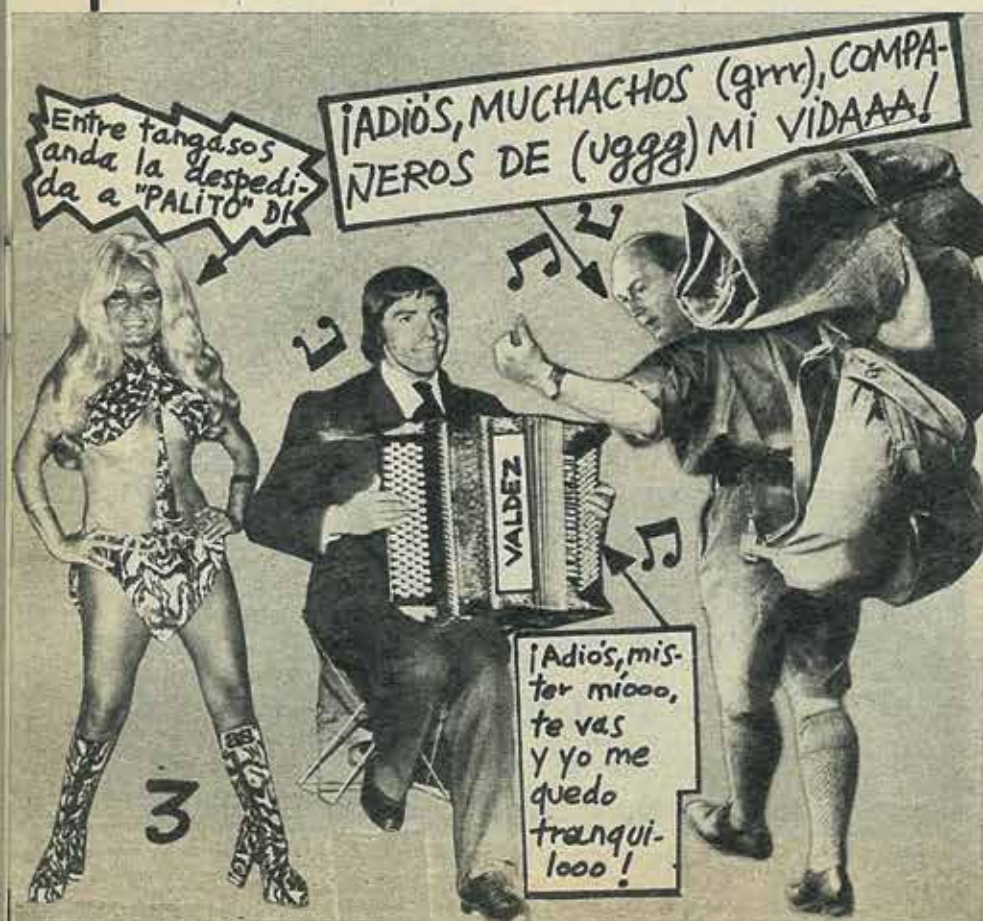 Entre tangasos
anda la despedi-
da a "PALITO" DI
¡ADIÓS, MUCHACHOS (grrr), COMPA-
ÑEROS DE (uggg) MI VIDAAA!
VALDEZ
¡Adiós, mis-
ter míooo,
te vas
y yo me
quedo
tranqui-
looo!
3